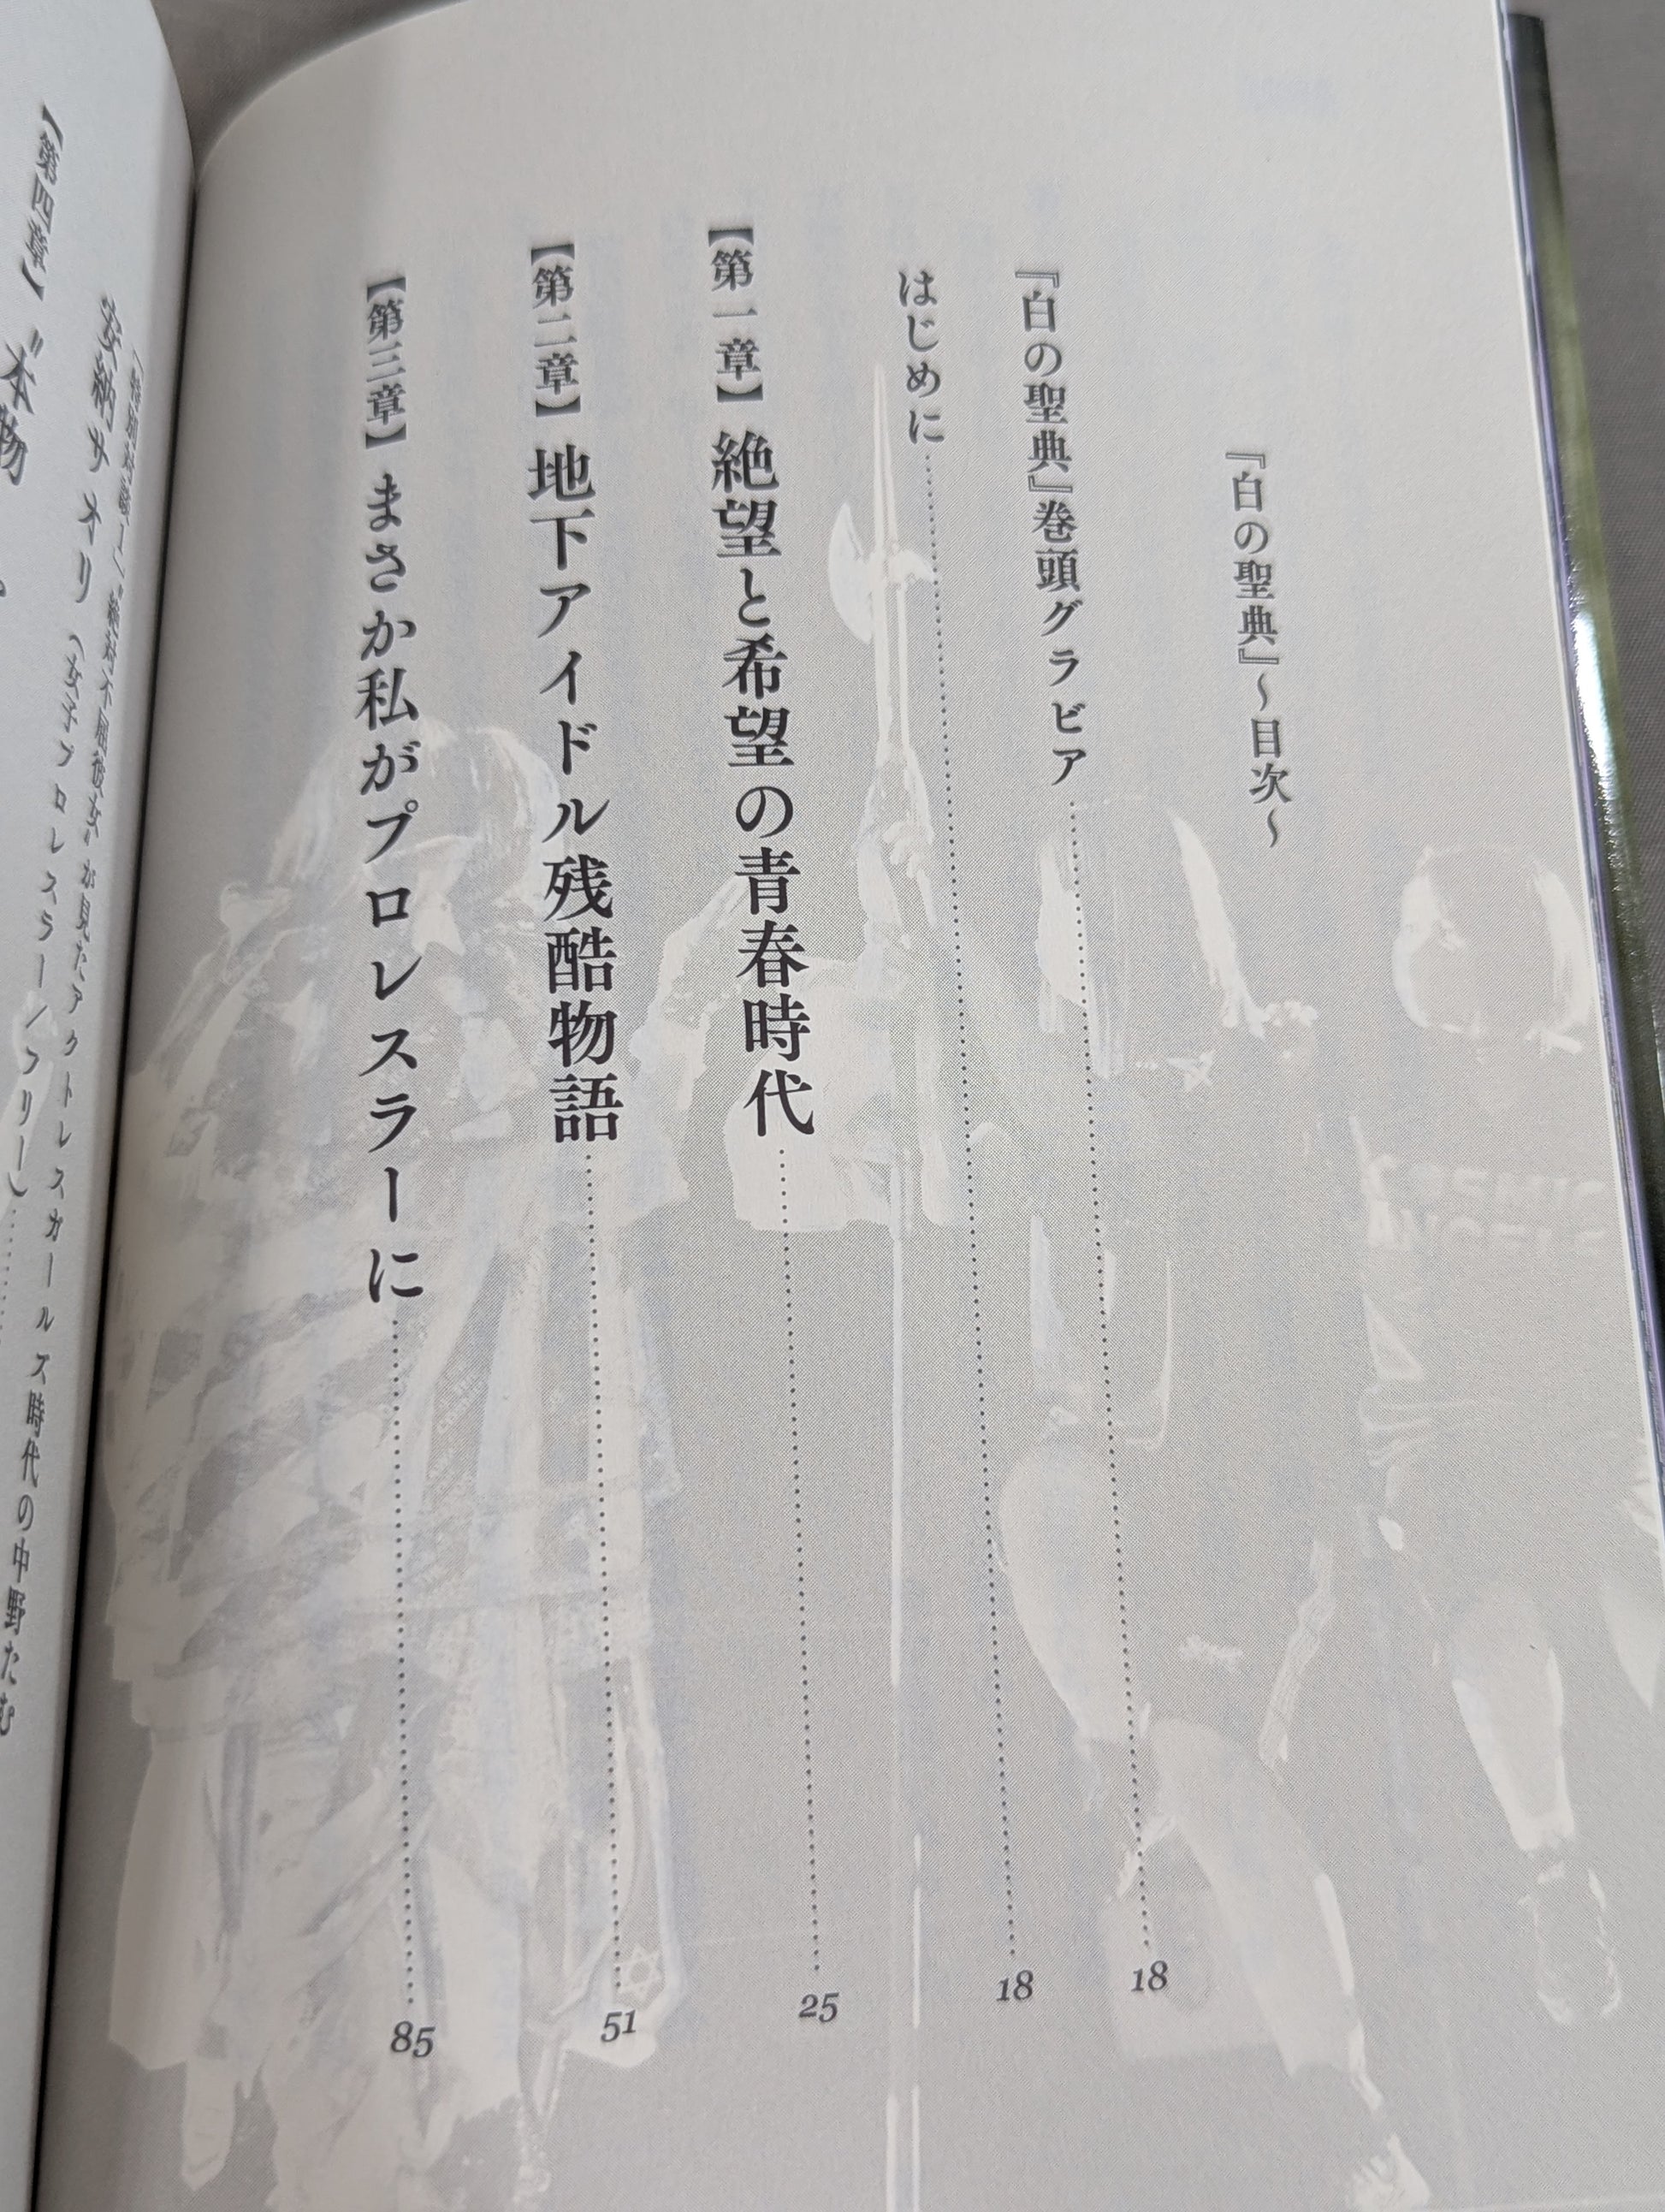 『白の聖典』～目次～
『白の聖典』巻頭グラビア 18
はじめに 18
【第一章】 絶望と希望の青春時代 25
【第二章】 地下アイドル残酷物語 51
【第三章】 まさか私がプロレスラーに 85
が見たアクトレスガールズ時代の中野たむ
安納サオリ（女子プロレスラー／フリー）
【第四章】 〝本物